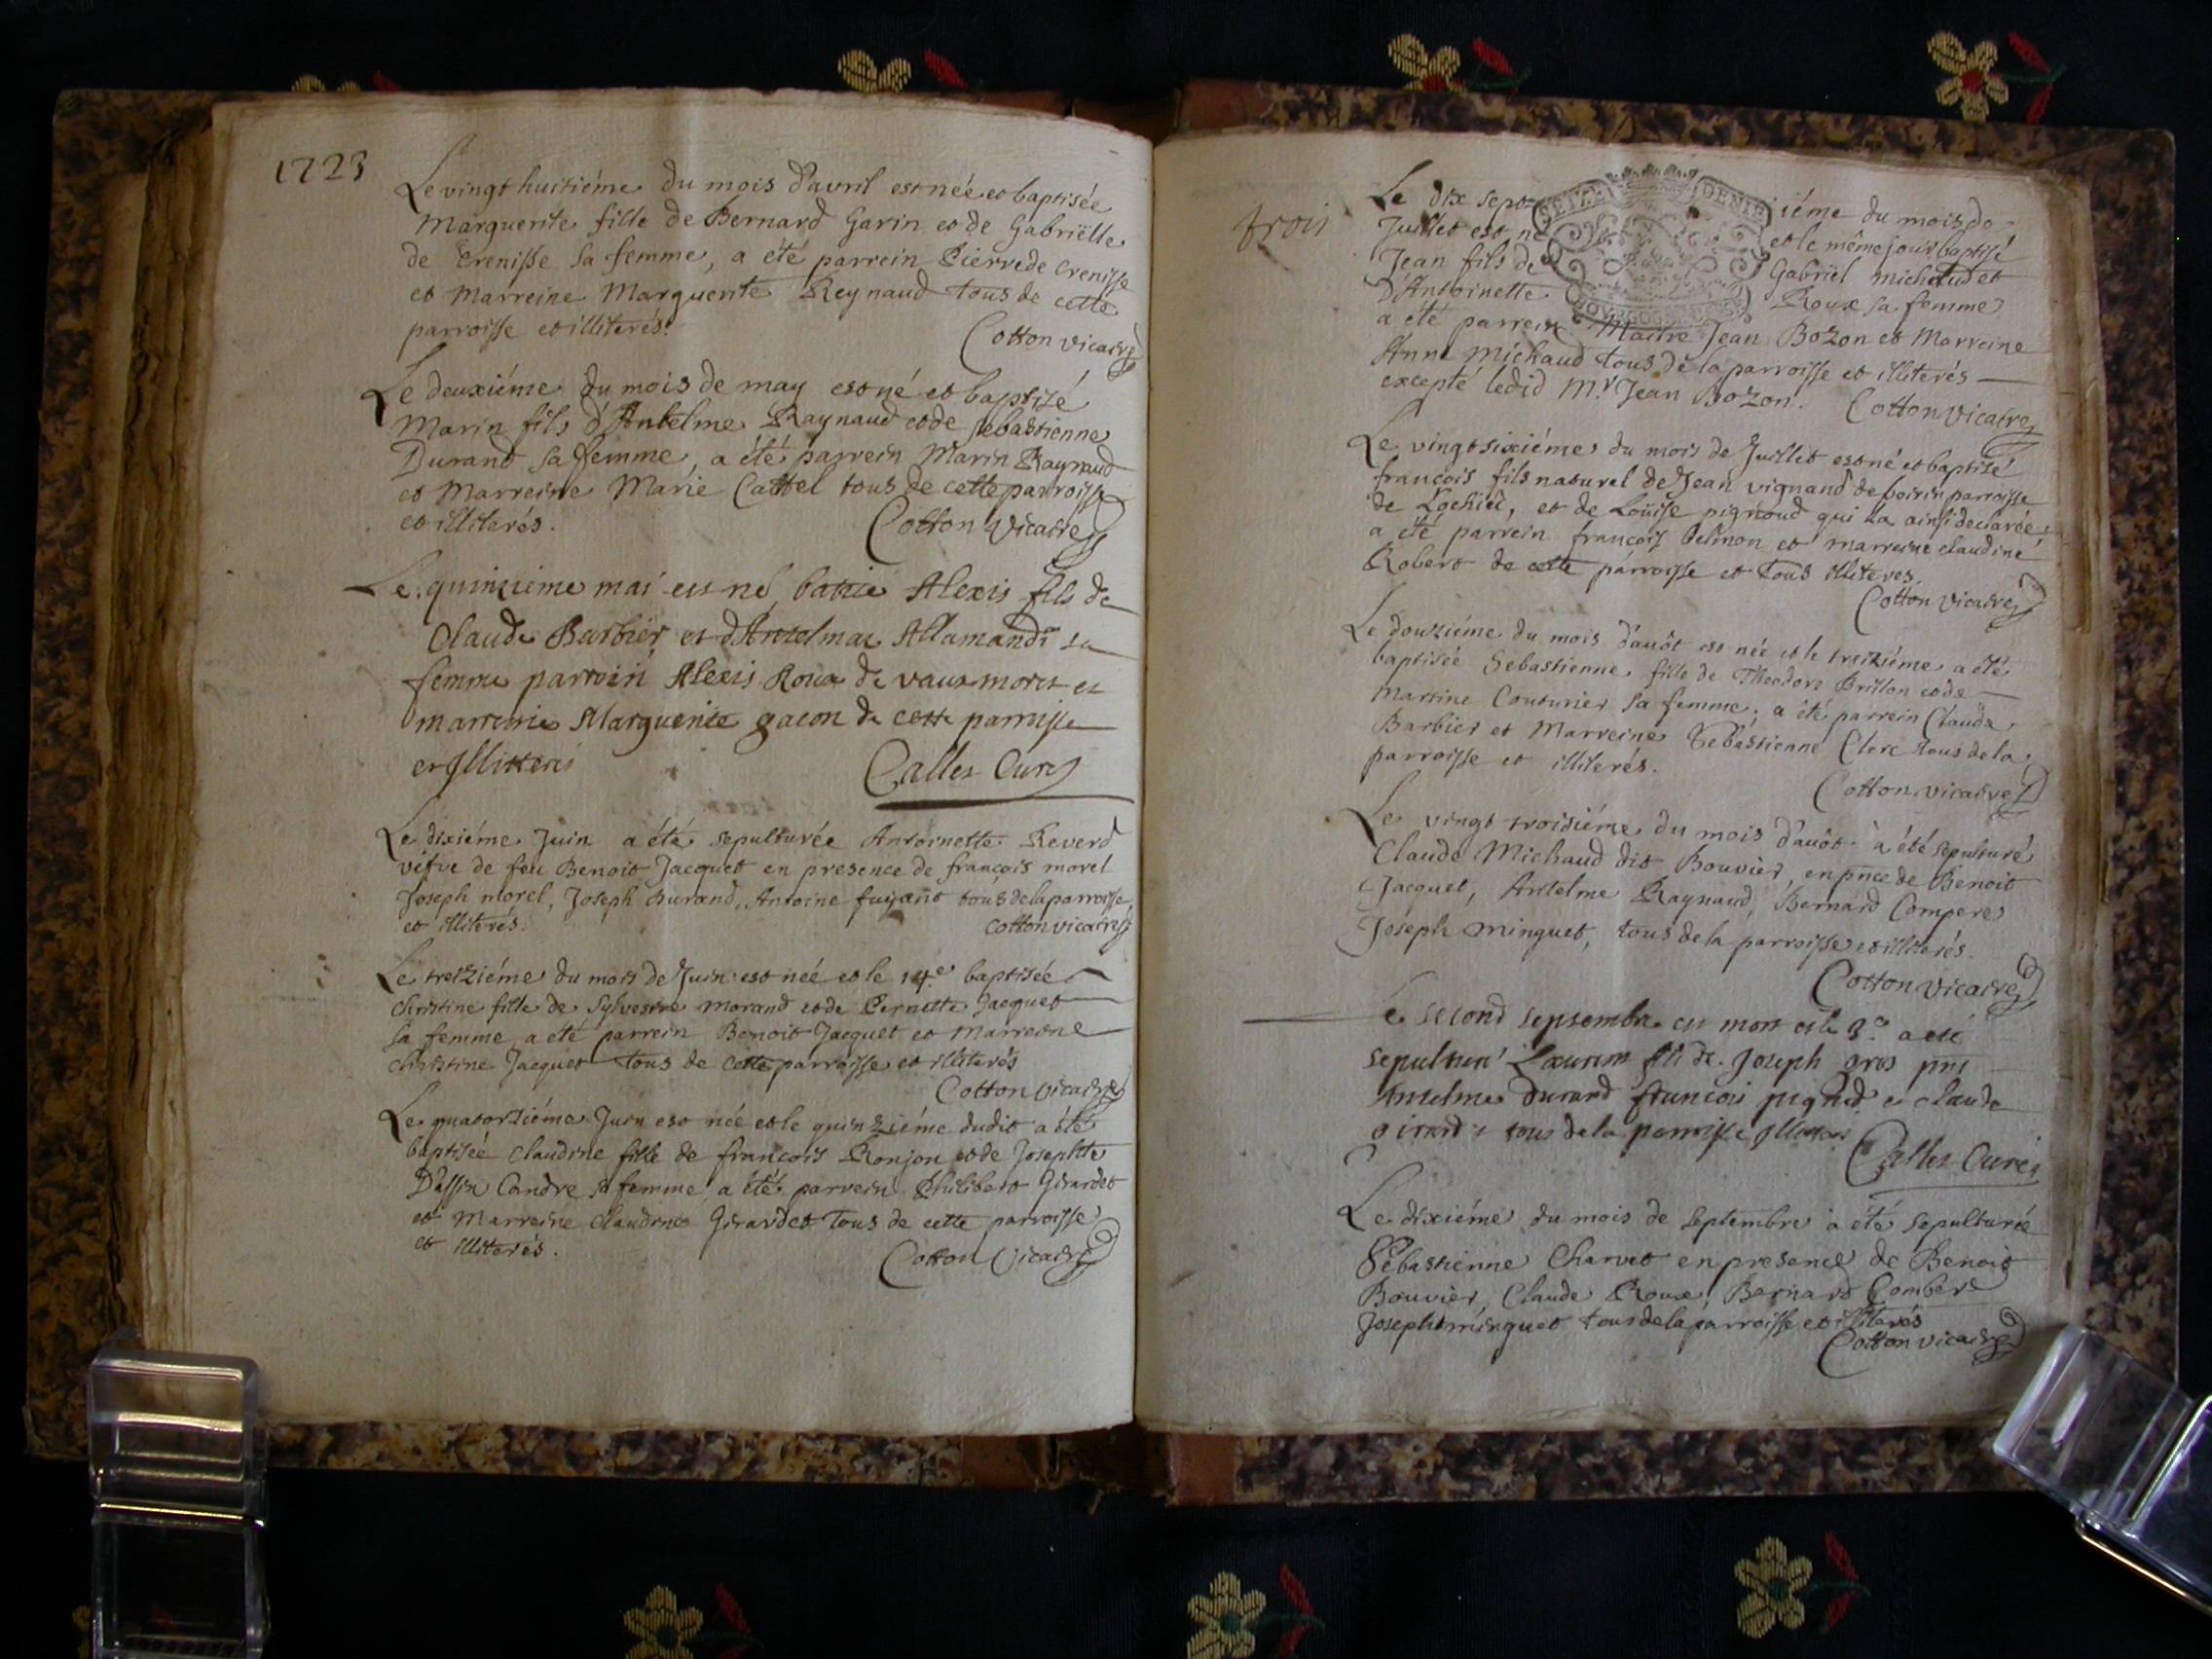 1723
Le vingt huitiéme du mois d'avril est née et baptisée
Marguerite fille de Bernard Garin et de Gabriëlle
de Crenisse sa femme, a été parrein Pierre de Crenisse
et Marreine Marguerite Reynaud tous de cette
parroisse et illiterés.
Cotton vicaire
Le deuxiéme du mois de may est né et baptisé
Marin fils d'Antelme Raynaud et de Sebastienne
Durand sa femme, a été parrein Marin Raynaud
et Marreine Marie Cattel tous de cette parroisse
et illiterés.
Cotton vicaire
Le quinzieme mai est né Alexis fils de
Claude Barbiér et d'Antelmae Allamandi sa
femme parrein Alexis Roux de vaux et
marreine Marguerite gacon de cette parroisse
et Illitteres
Calles Curé
Le dixiéme Juin a été sepulturée Antoinette Reverd
véfve de feu Benoit Jacquet en presence de françois morel
Joseph morel, Joseph Durand, Antoine tous de la parroisse
et illiterés.
Cotton vicaire
Le treiziéme du mois de Juin est née et le 14e baptisée
Christine fille de Sylvestre Morand et de Pernette Jacquet
sa femme a été parrein Benoit Jacquet et Marreine
Christine Jacquet tous de cette parroisse et illiterés
Cotton vicaire
Le quatorziéme Juin est née et le quinziéme dudit a été
baptisée Claudine fille de françois Ronjon et de Josephte
sa femme a été parrein Philibert Girardet
et Marreine Claudine Girardet tous de cette parroisse
et illiterés.
Cotton vicaire
trois
Le dix sept iéme du mois de
Juillet est né et le même jour baptisé
Jean fils de Gabriel michaud et
d'Antoinette Roux sa femme
a été parrein Maitre Jean Bozon et Marreine
Anne Michaud tous de la parroisse et illiterés
excepté ledid Mr Jean Bozon.
Cotton vicaire
Le vingt sixiéme du mois de Juillet est né et baptisé
françois fils naturel de Jean vignand de parroisse
de Lochieu, et de Loüise pignoud qui la ainsi declarée
a été parrein françois et marreine claudine
Robert de cette parroisse et tous illiteres.
Cotton vicaire
Le douziéme du mois d'auôt est née et le treiziéme a été
baptisée Sebastienne fille de Theodore Brillon et de
Martine Couturier sa femme, a été parrein Claude
Barbier et Marreine Sebastienne Clerc tous de la
parroisse et illiterés.
Cotton vicaire
Le vingt troisiéme du mois d'auôt à été sepulturé
Claude Michaud dit Bouvier, en pnce de Benoit
Jacquet, Antelme Raynaud, Bernard Comperes
Joseph minguet, tous de la parroisse et illiterés.
Cotton vicaire
Le second septembre est mort et le 3e a été
sepulturé Laurent fils de Joseph gros pnt
Antelme Durand francois pignod e claude
girard tous de la parroisse Illiteres
Calles Curé
Le dixiéme du mois de septembre a été sepulturée
Sébastienne Charvet en presence de Benoit
Bouvier, Claude Roux, Bernard Combere
Joseph minguet tous de la parroisse et illiterés
Cotton vicaire